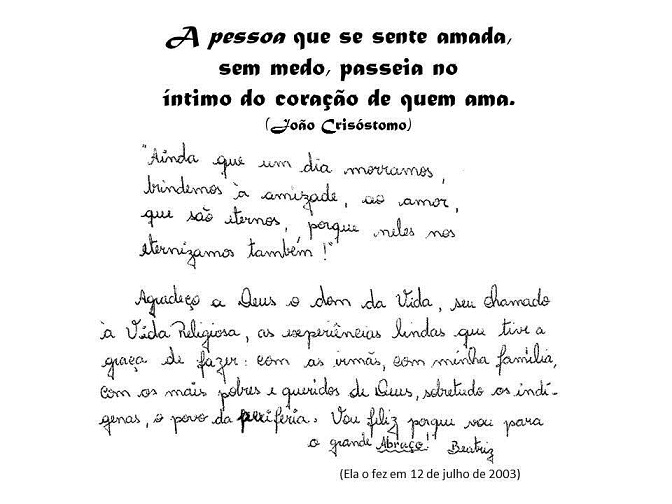 A pessoa que se sente amada,
sem medo, passeia no
íntimo do coração de quem ama.
(João Crisóstomo)
"Ainda que um dia morramos,
brindemos à amizade, ao amor,
que são eternos, porque neles nos
eternizamos também!"
Agradeço a Deus o dom da Vida, seu chamado
à Vida Religiosa, as experiências lindas que tive a
graça de fazer: com as irmãs, com minha família,
com os mais pobres e queridos de Deus, sobretudo os indí-
genas, o povo da periferia. Vou feliz porque vou para
o grande Abraço! Beatriz
(Ela o fez em 12 de julho de 2003)